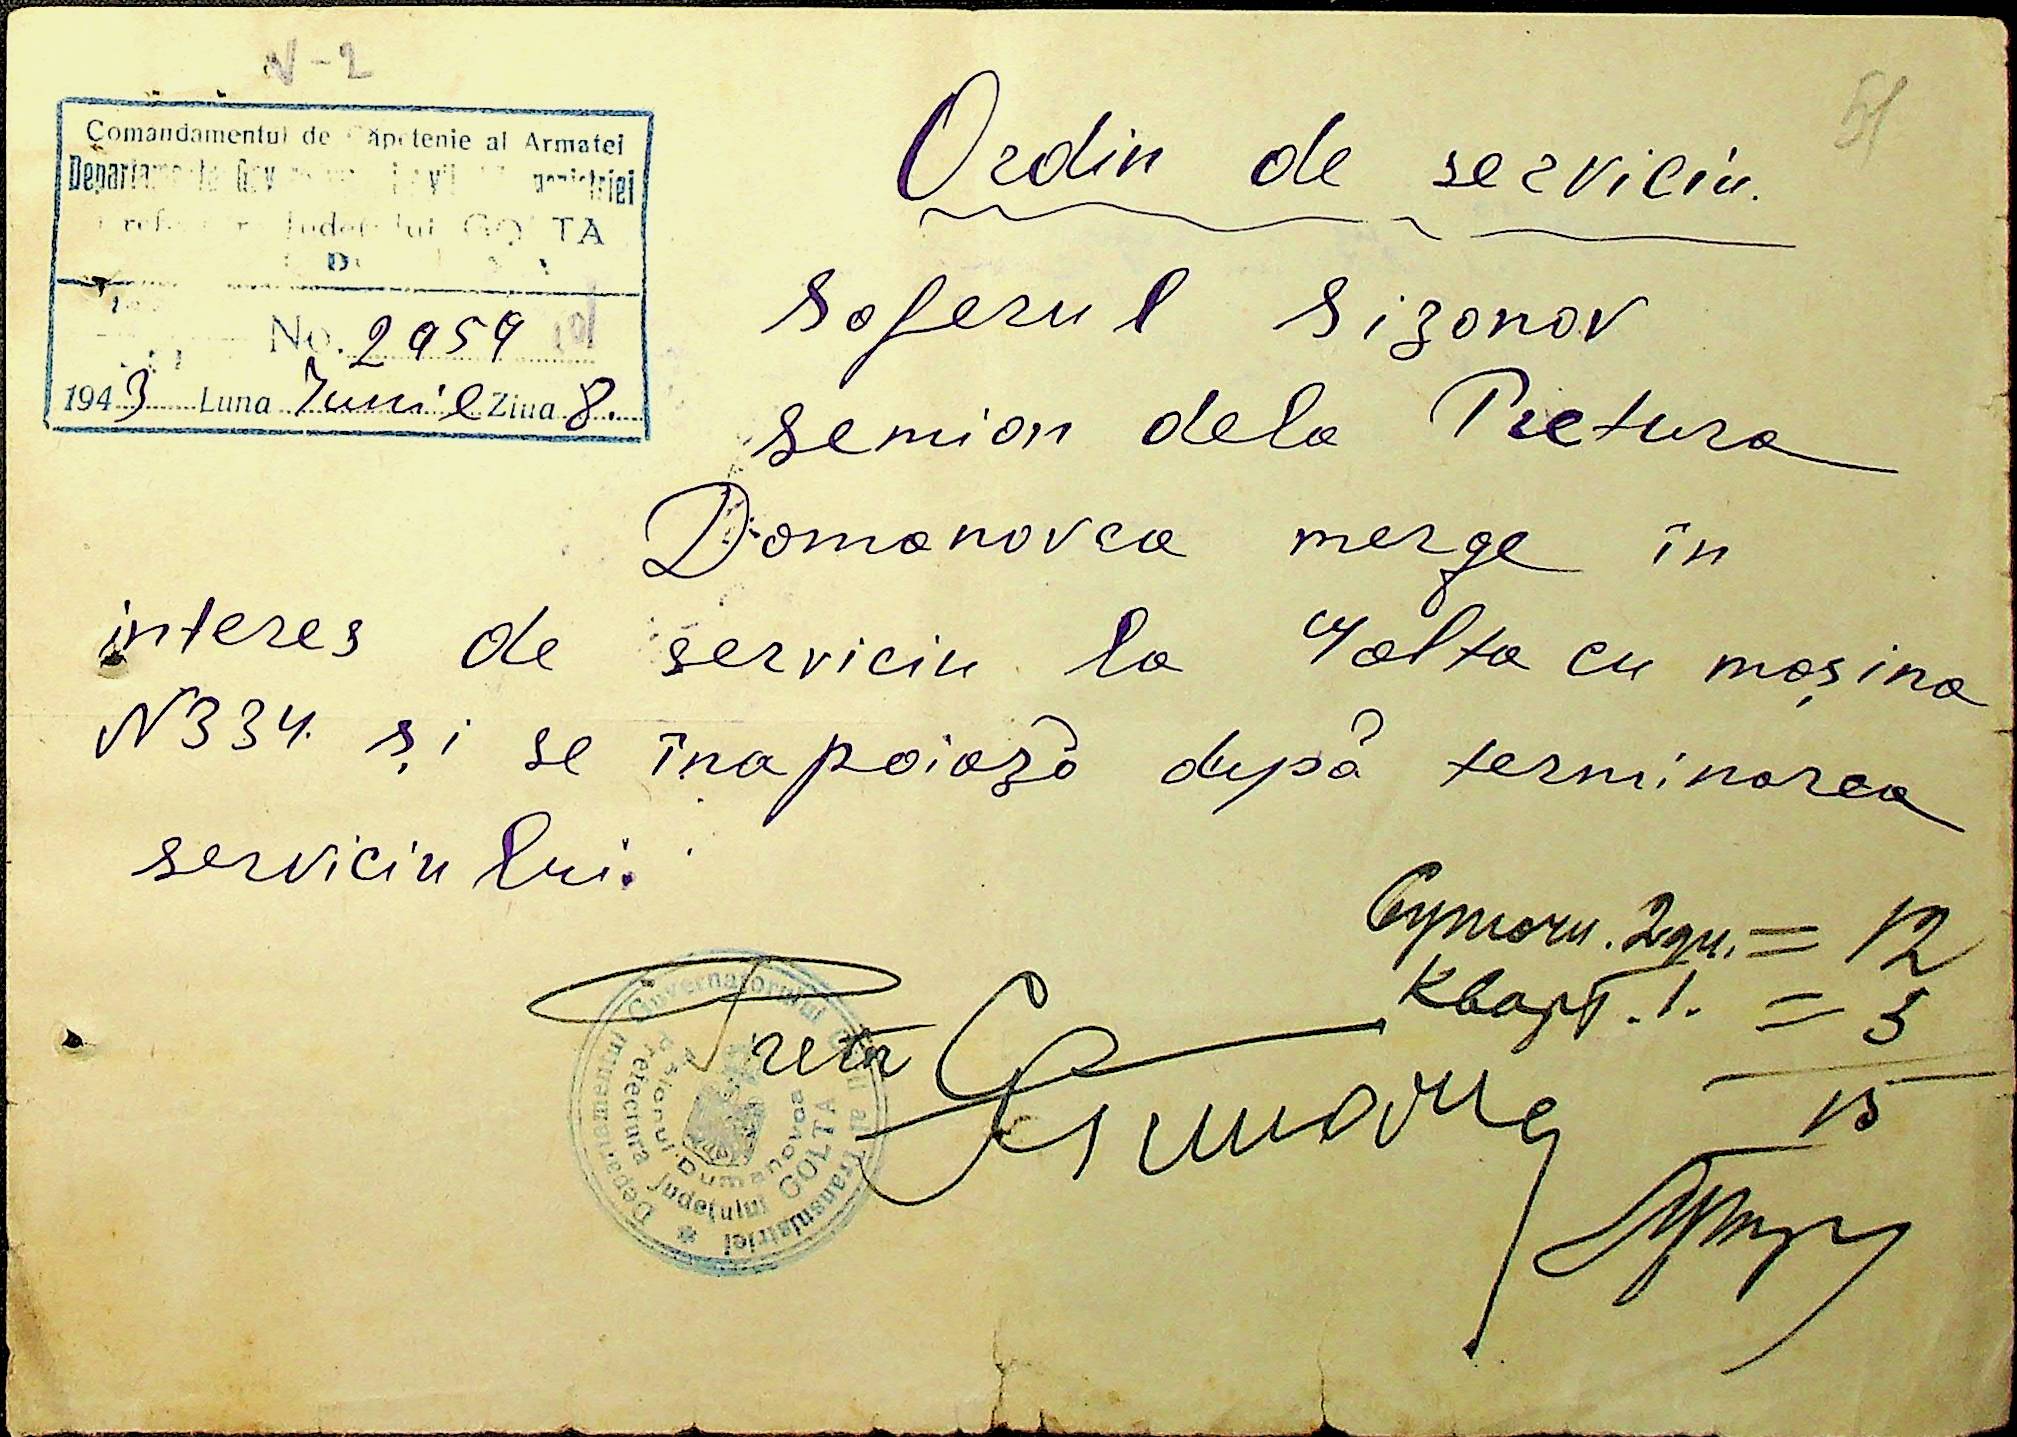 N-2
51
Comandamentul de Căpetenie al Armatei
Județului GOLTA
No. 2959
1943 Luna Iunie Ziua 8.
Ordin de serviciu.
Soferul Sizonov
Semion dela Pretura
Domanovca merge în
interes de serviciu la Golta cu mașina
N 334. și se înapoiază după terminarea
serviciului.
Суточн. 2 дн. = 12
Кварт. 1. = 3
15
Pretor
Departamentul Guvernatorului Civil al Transnistriei
Prefectura Județului GOLTA
Raionul Dumanovca